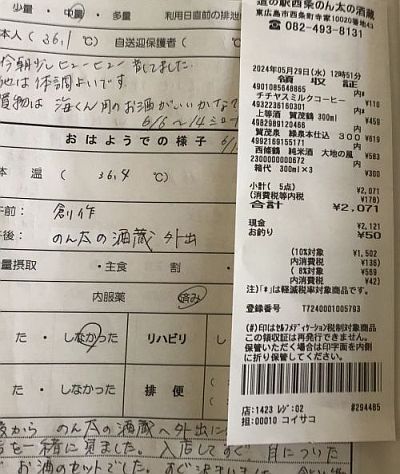 少量・中量・多量
利用日直前の排泄
本人(36.1 ℃) 自送迎保護者( ℃)
今朝少しヒューヒュー
他は体調よいです。
買物は 海くん用のお酒がいいかな
6/6 ～14
おはようでの様子
体温(36.4 ℃)
午前: 創作
午後: のん太の酒蔵 外出
量摂取 ・主食( 割
内服薬 済み
た・しなかった リハビリ
た・しなかった 排便
から のん太の酒蔵へ外出に
を一緒に見ました。入店してすぐ 目についた
お酒のセットでした。
道の駅西条のん太の酒蔵
東広島市西条町寺家10020番地43
☎ 082-493-8131
2024年05月29日(水) 12時51分
領収証
4901085648865
チチヤスミルクコーヒー
¥110
4932236160301
上等酒 賀茂鶴 300ml
¥459
4982989120466
賀茂泉 緑泉本仕込 300
¥619
4992169155171
西條鶴 純米酒 大地の風
¥583
2300000000672
箱代 300ml×3
¥300
小計( 5点) ¥2,071
(消費税等内税 ¥178)
合計 ¥2,071
現金 ¥2,121
お釣り ¥50
(10%対象 ¥1,502
内消費税 ¥136)
( 8%対象 ¥569
内消費税 ¥42)
注)「*」は軽減税率対象商品です。
登録番号 T7240001005793
(#)印はセルフメディケーション税制対象商品
この領収証は再発行できません。
保管いただく場合は印字面を内側
に折り保管してください。
店:1423 レジ:02 #294485
担:00010 コイサコ